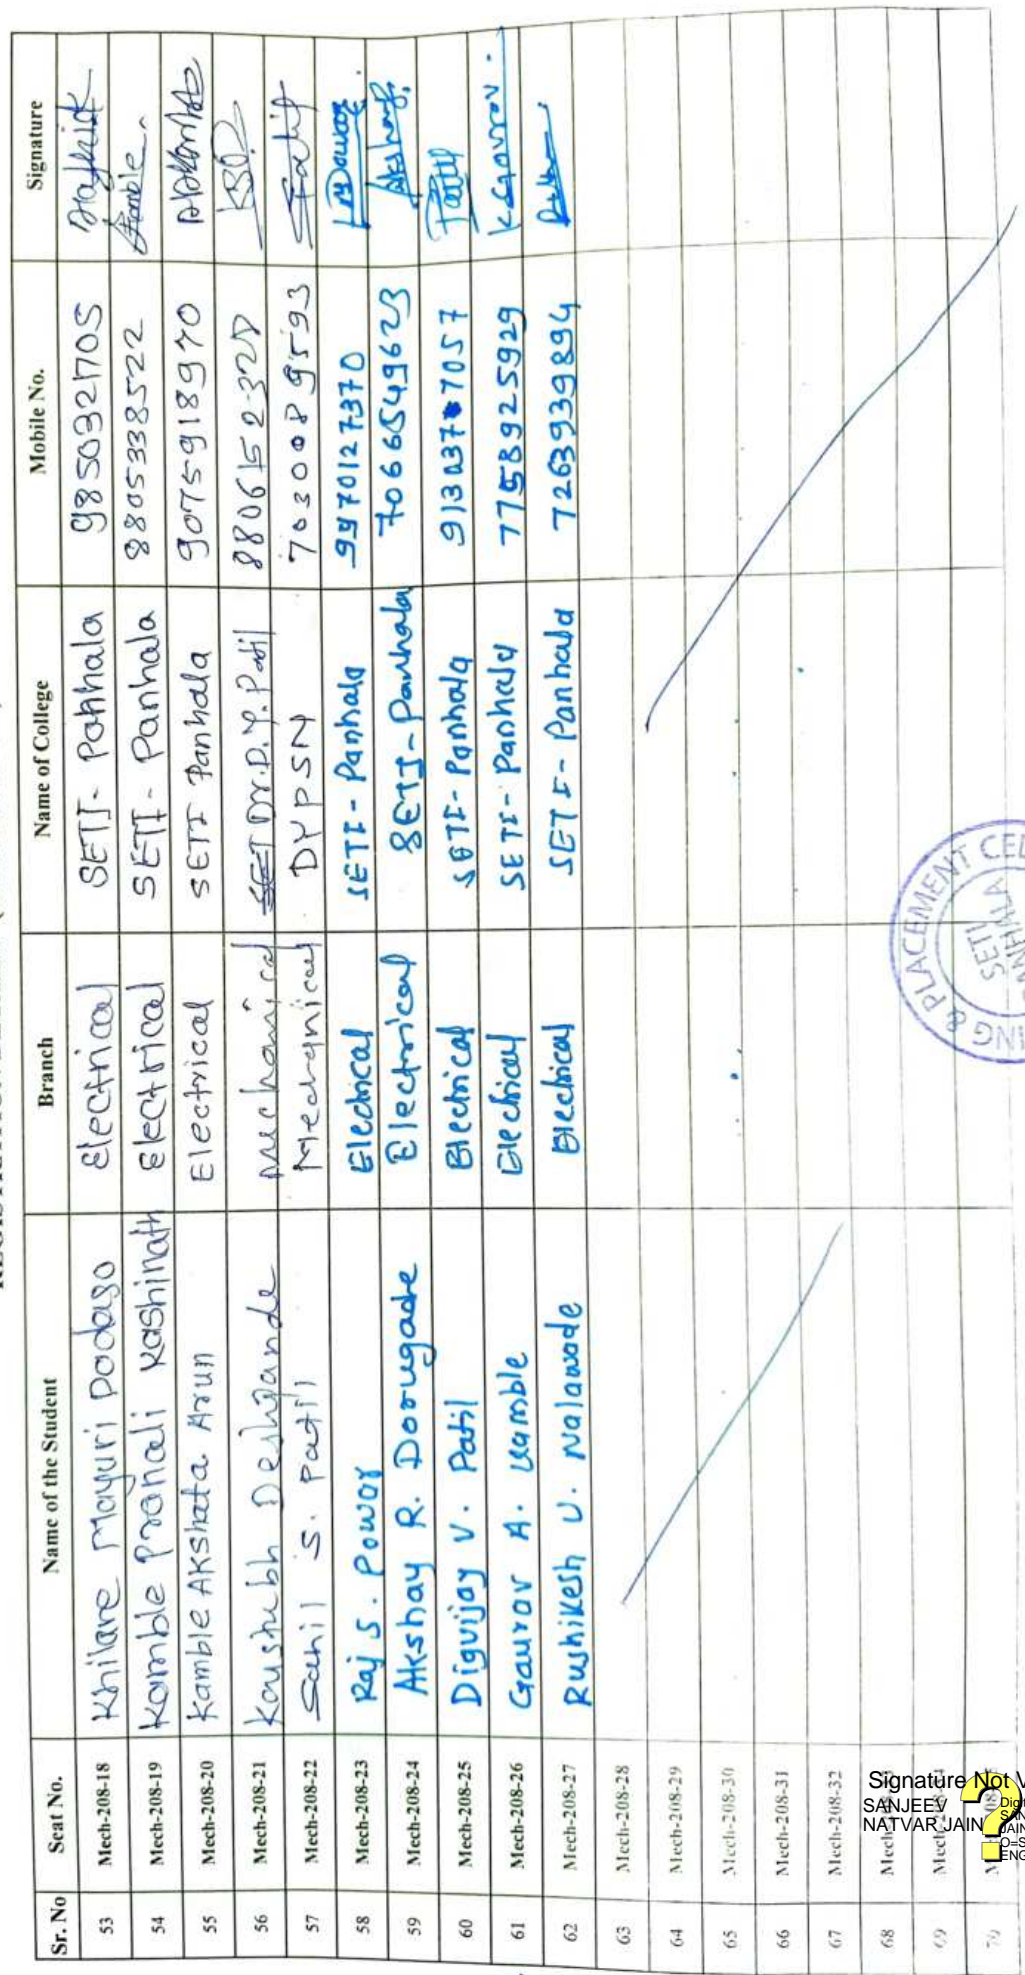 Sr. No Seat No. Name of the Student Branch Name of College Mobile No. Signature
53 Mech-208-18 Khilare Mayuri Dadaso Electrical SETI- Panhala 9850321705
54 Mech-208-19 Kamble Pranali Kashinath Electrical SETI - Panhala 8805338522 Kamble
55 Mech-208-20 Kamble Akshata Arun Electrical SETI Panhala 9075918970
56 Mech-208-21 Kaustubh Deshpande mechanical SET Dr.D.Y.Patil 8806152328
57 Mech-208-22 Sahil S. Patil Mechanical DYPSN 7030089593
58 Mech-208-23 Raj S. Powar Electrical SETI - Panhala 9970127370
59 Mech-208-24 Akshay R. Dorugade Electrical SETI- Panhala 7066549623 Akshay
60 Mech-208-25 Digvijay V. Patil Electrical SETI- Panhala Patil
61 Mech-208-26 Gaurav A. Kamble Electrical SETI- Panhala 7758925929 KGaurav.
62 Mech-208-27 Rushikesh U. Nalawade Electrical SETI- Panhala 7263939894
63 Mech-208-28
64 Mech-208-29
65 Mech-208-30
66 Mech-208-31
67 Mech-208-32
68
69
70
& PLACEMENT CEL
SETI
Signature Not V
SANJEEV
NATVAR JAIN